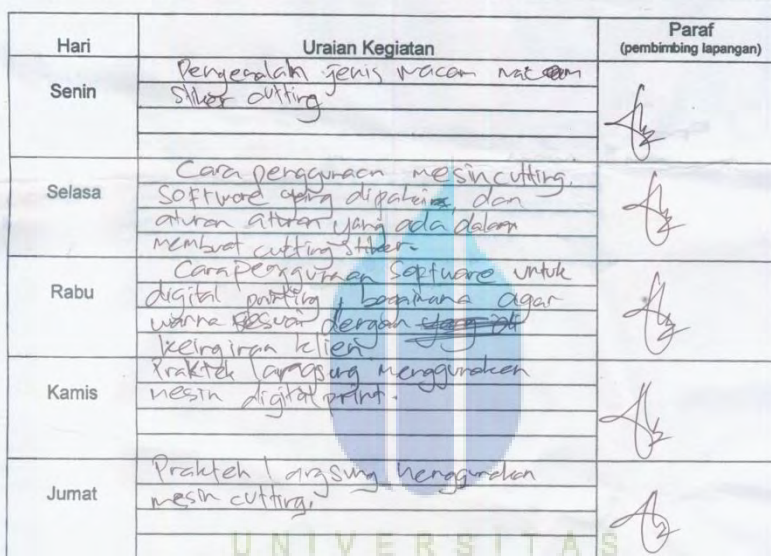 Hari Uraian Kegiatan Paraf
(pembimbing lapangan)
Senin
Pengenalan jenis macam
Stiker cutting
Selasa
Cara penggunaan mesin cutting,
Software yang dipakai, dan
aturan aturan yang ada dalam
membuat cutting stiker.
Rabu
Cara penggunaan Software untuk
digital printing, bagaimana agar
warna sesuai dengan
keinginan klien
Kamis
Praktek langsung menggunakan
mesin digital print.
Jumat
Praktek langsung menggunakan
mesin cutting.
UNIVERSITAS